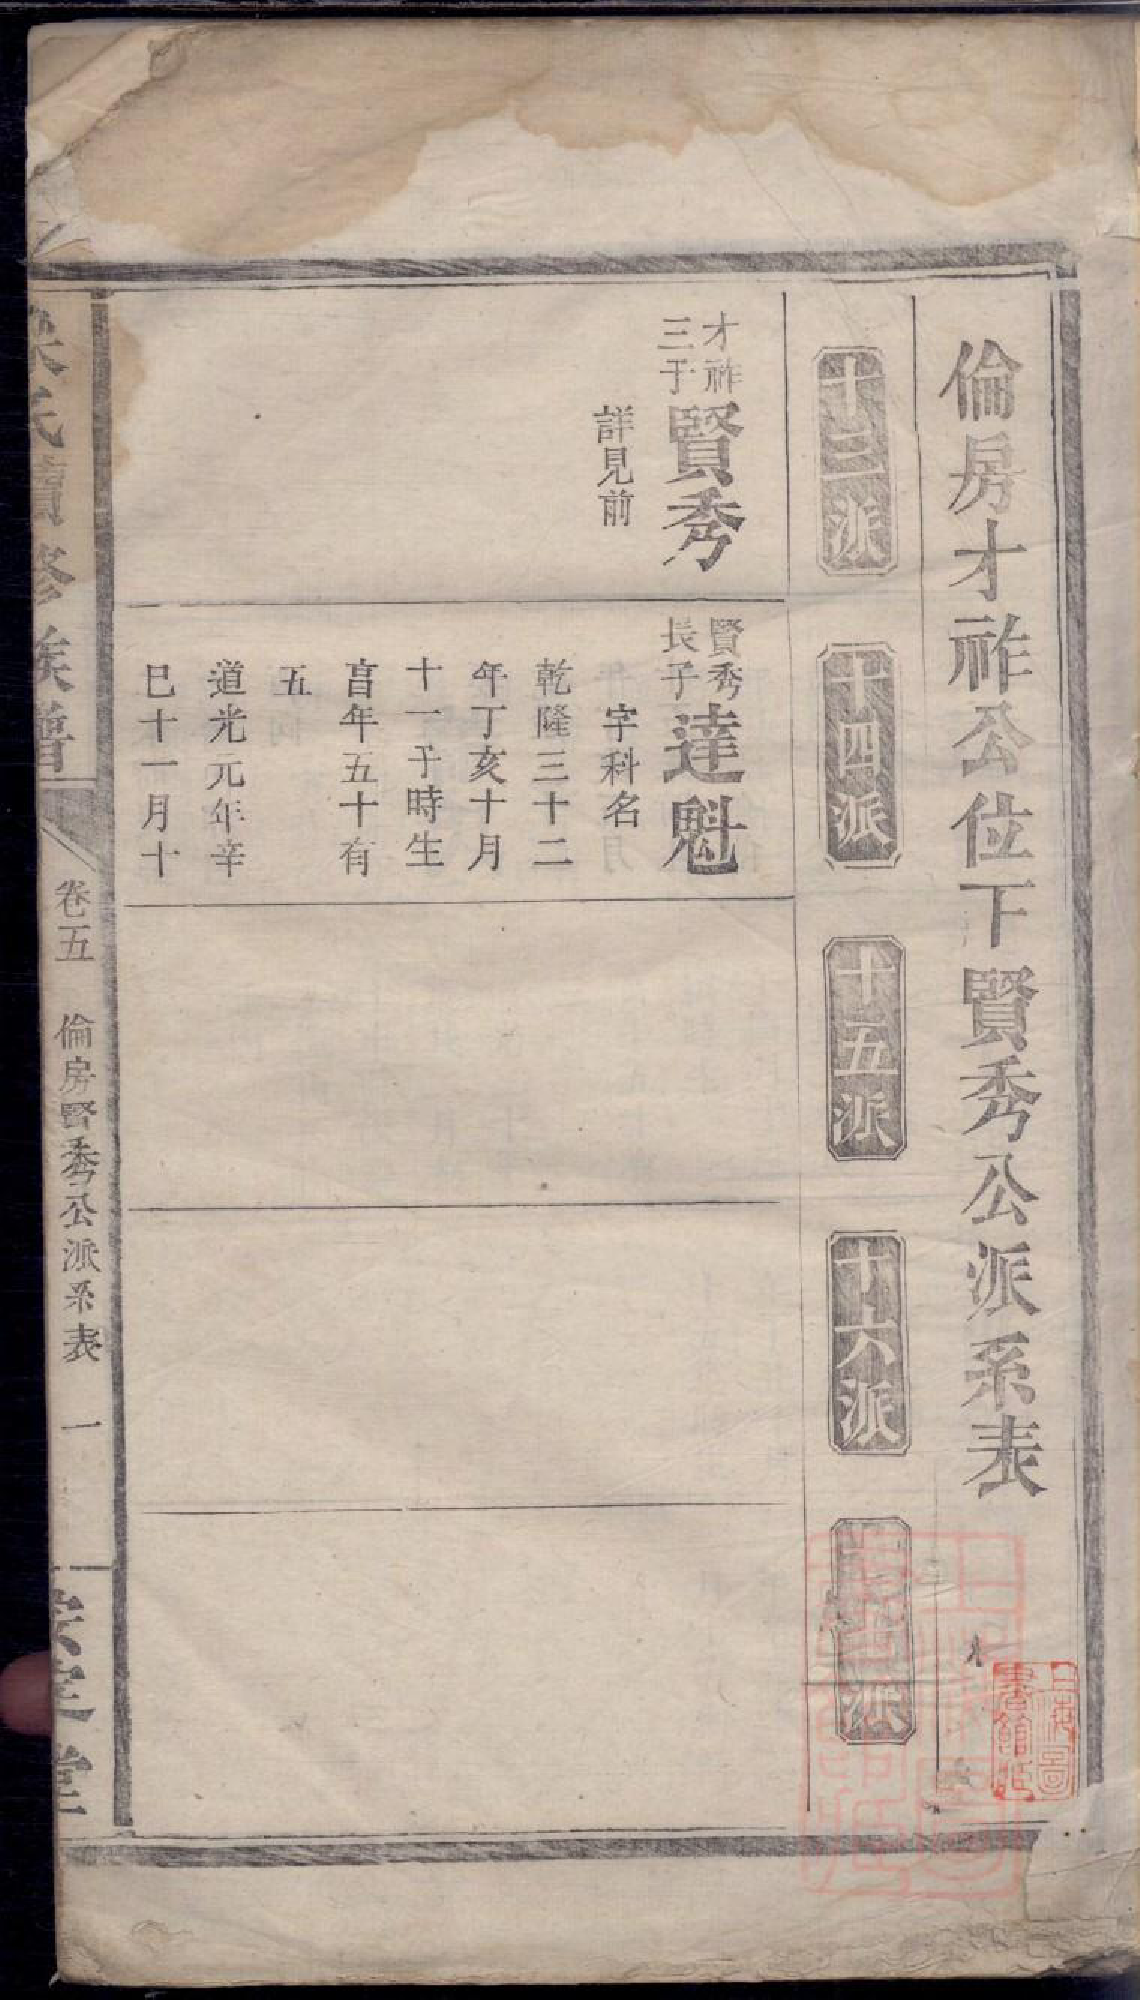 倫房才祚公位下賢秀公派系表
十三派
十四派
十五派
十六派
十七派
才祚
三子
賢秀
詳見前
賢秀
長子
達魁
字科名
乾隆三十二
年丁亥十月
十一子時生
享年五十有
五
道光元年辛
巳十一月十
氏續修族譜
卷五
倫房賢秀公派系表
一
堂
上海圖
書館藏